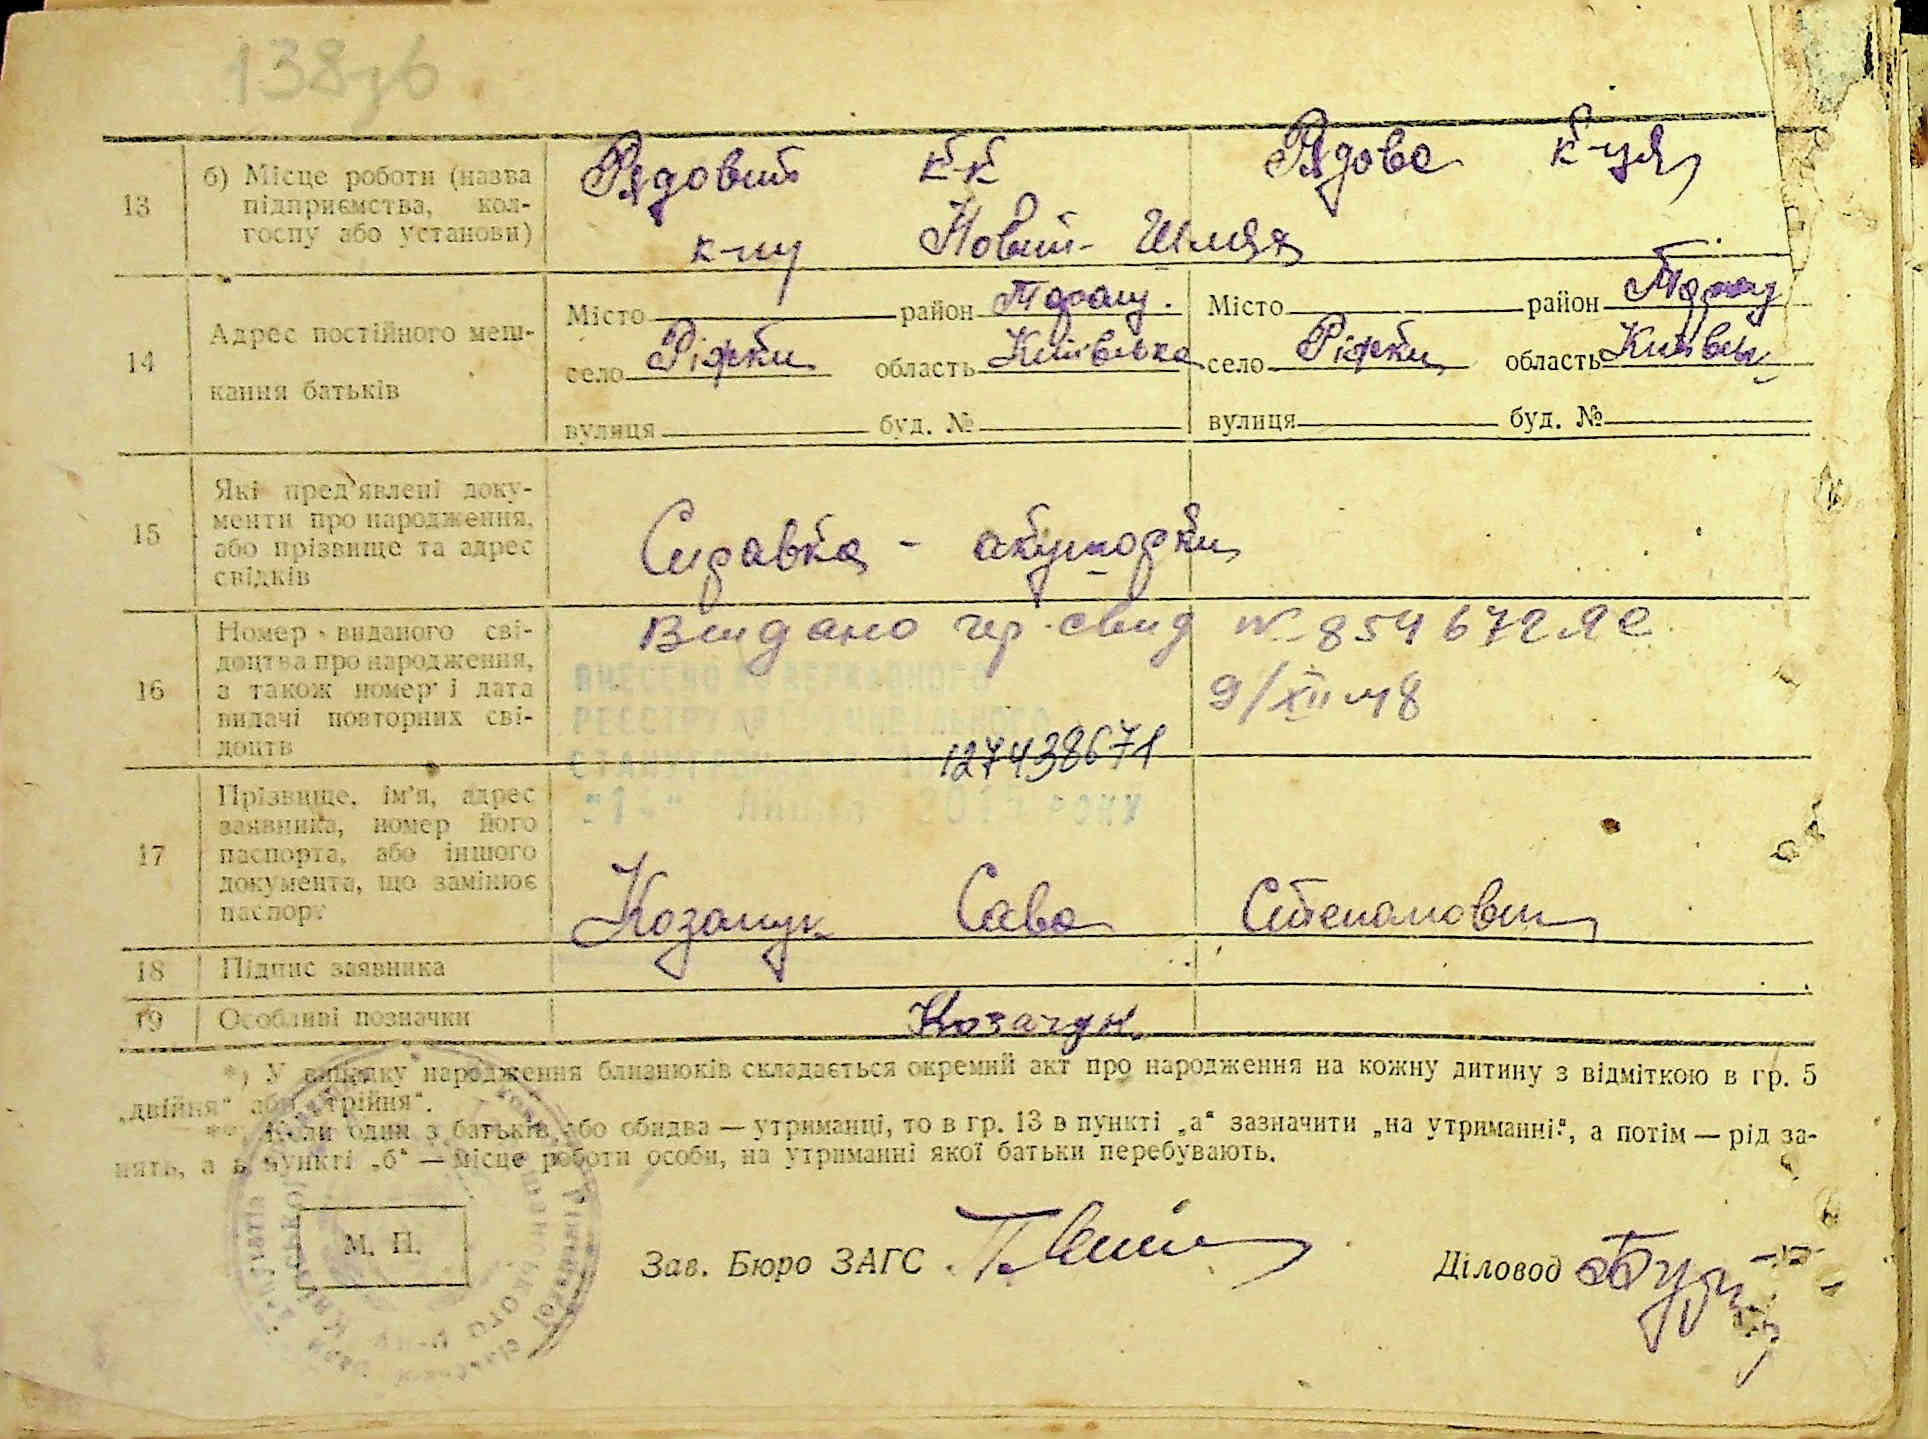 138зв
13 б) Місце роботи (назва підприємства, колгоспу або установи)
Рядовий к-к Рядова к-ця
к-пу Новий-Шлях
14 Адрес постійного мешкання батьків
Місто район Таращ. Місто район Таращ
село Ріжки область Київська село Ріжки область Київсь
вулиця буд. № вулиця буд. №
15 Які пред'явлені документи про народження, або прізвище та адрес свідків
Справка - акушорки
16 Номер виданого свідоцтва про народження, а також номер і дата видачі повторних свідоцтв
Видано гер. свид № 854672 ЯС
9/XII 48
ВНЕСЕНО ДО ДЕРЖАВНОГО
РЕЄСТРУ
127438671
РОКУ
17 Прізвище, ім'я, адрес заявника, номер його паспорта, або іншого документа, що замінює паспорт
Козачук Сава Степанович
18 Підпис заявника
19 Особливі позначки
Козачук
*) У випадку народження близнюків складається окремий акт про народження на кожну дитину з відміткою в гр. 5
„двійня" або „трійня".
**) Коли один з батьків або обидва — утриманці, то в гр. 13 в пункті „а" зазначити „на утриманні", а потім — рід за-
нять, а в пункті „б" — місце роботи особи, на утриманні якої батьки перебувають.
М. П.
Зав. Бюро ЗАГС
Діловод